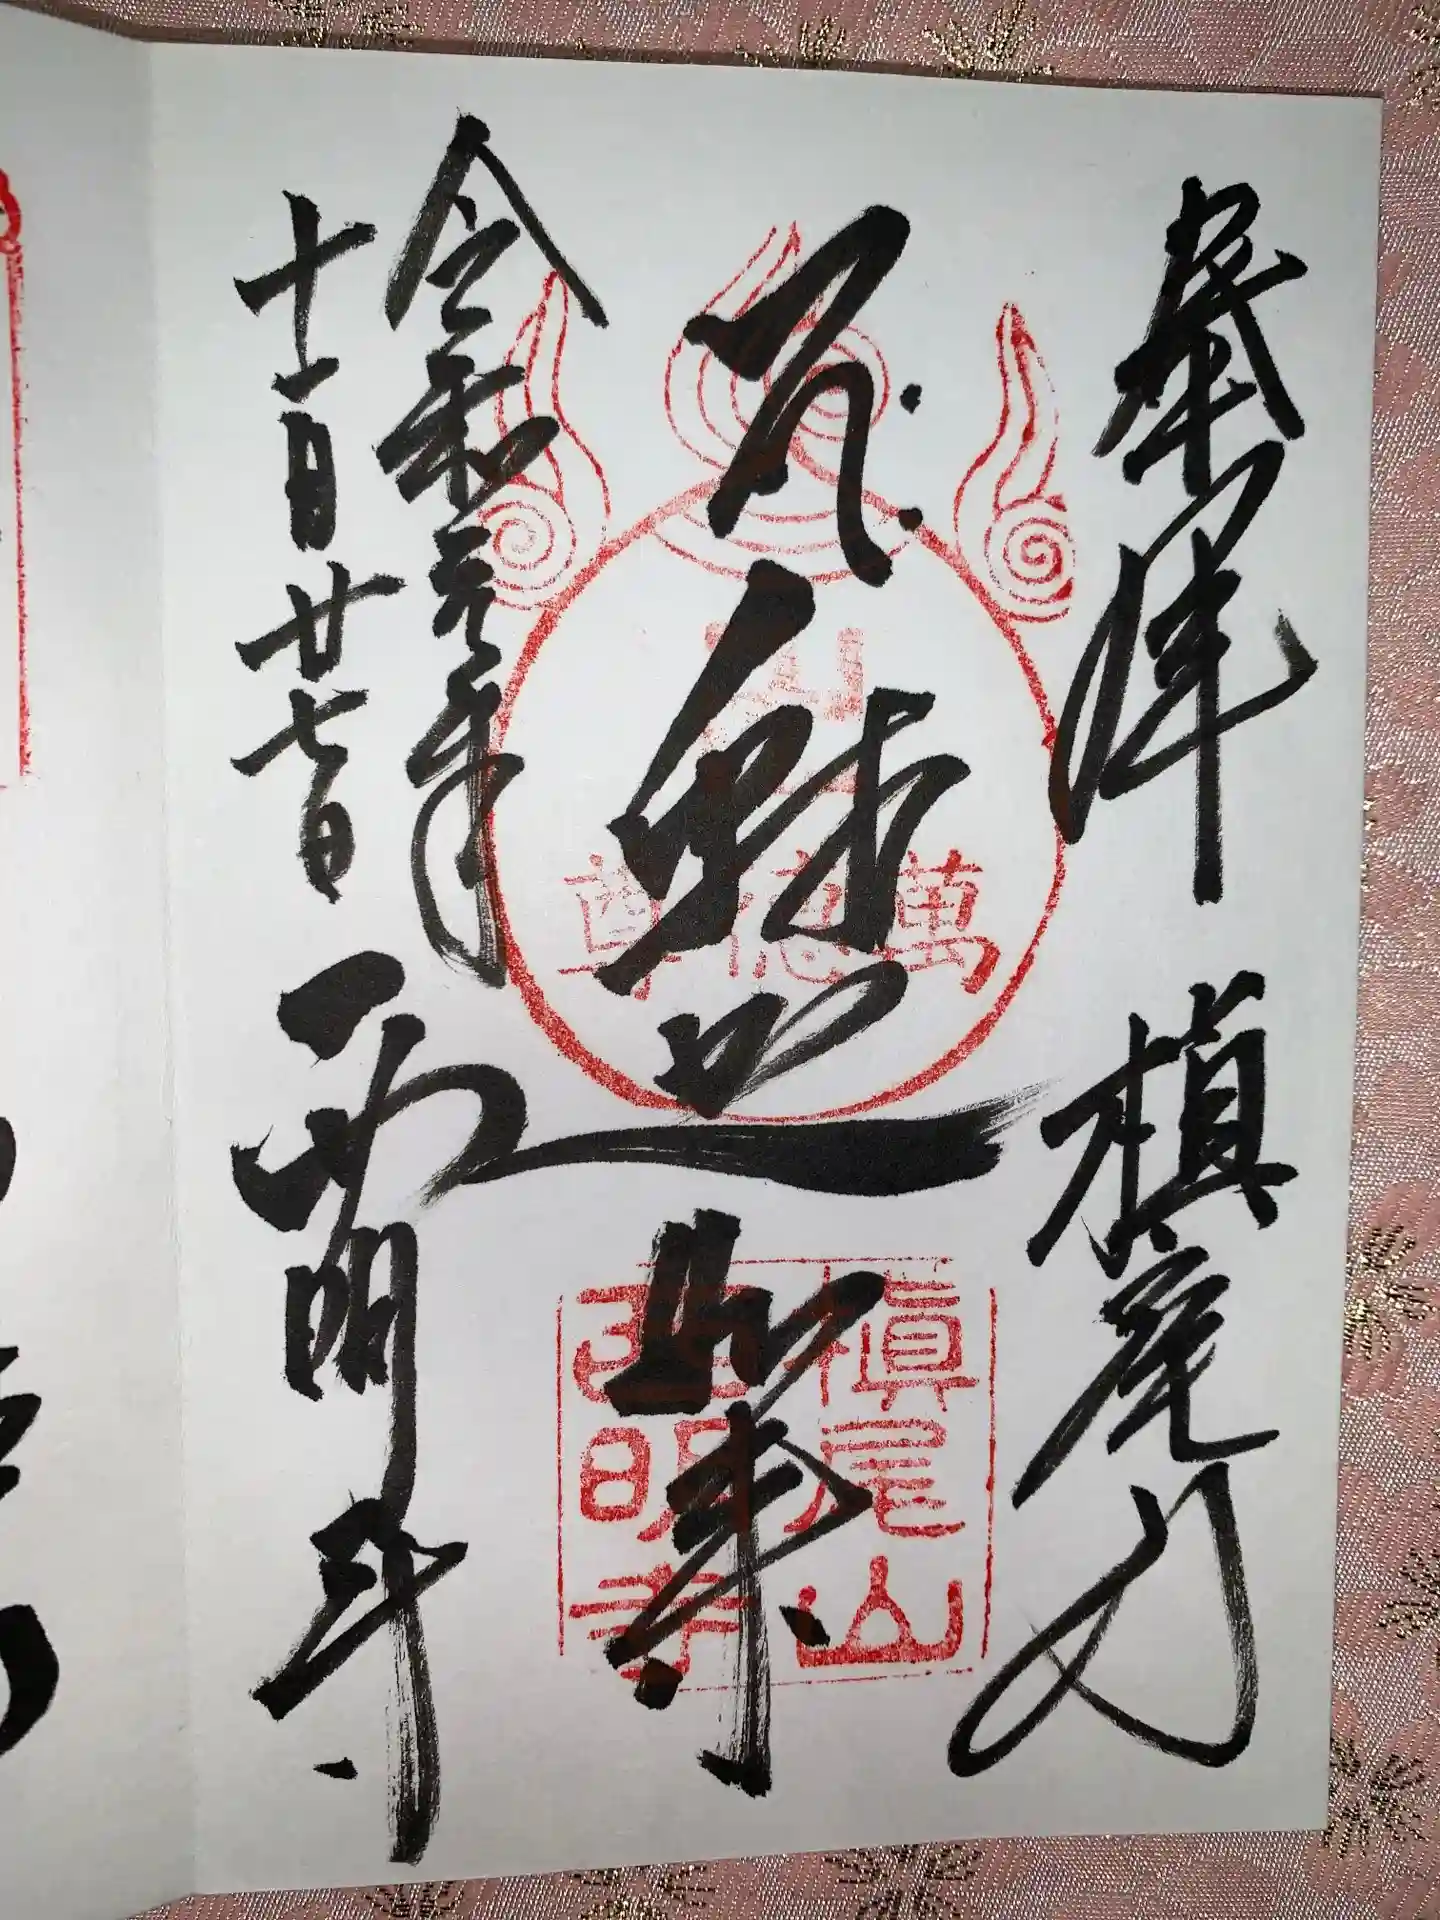 奉拝 槇尾山
釈迦如来
萬徳尊
槇尾山
西明寺
令和元年
十一月廿七日
西明寺